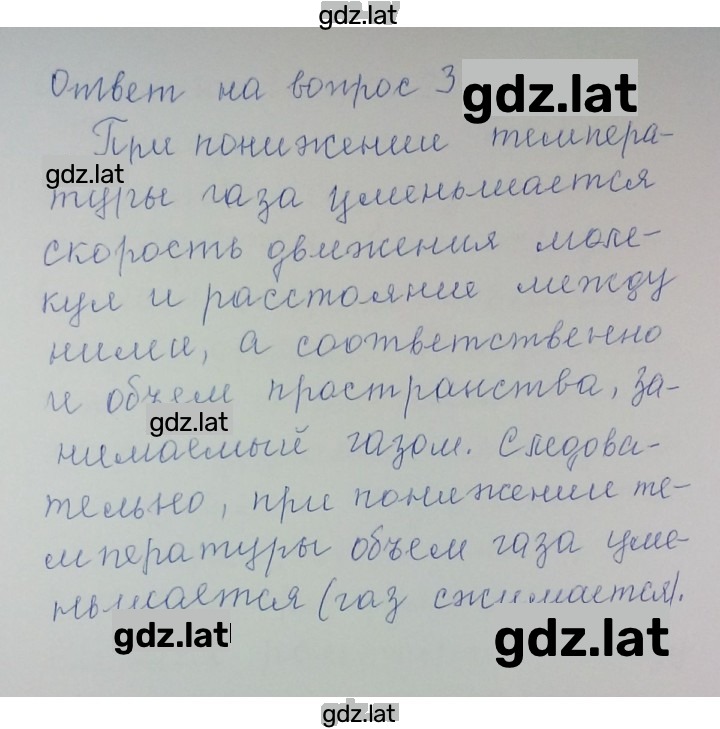 gdz.lat
Ответ на вопрос 3
gdz.lat
При понижении темпера-
gdz.lat
туры газа уменьшается
скорость движения моле-
кул и расстояние между
ними, а соответственно
и объем пространства, за-
gdz.lat
нимаемый газом. Следова-
тельно, при понижении те-
мпературы объем газа уме-
ньшается (газ сжимается).
gdz.lat
gdz.lat
gdz.lat